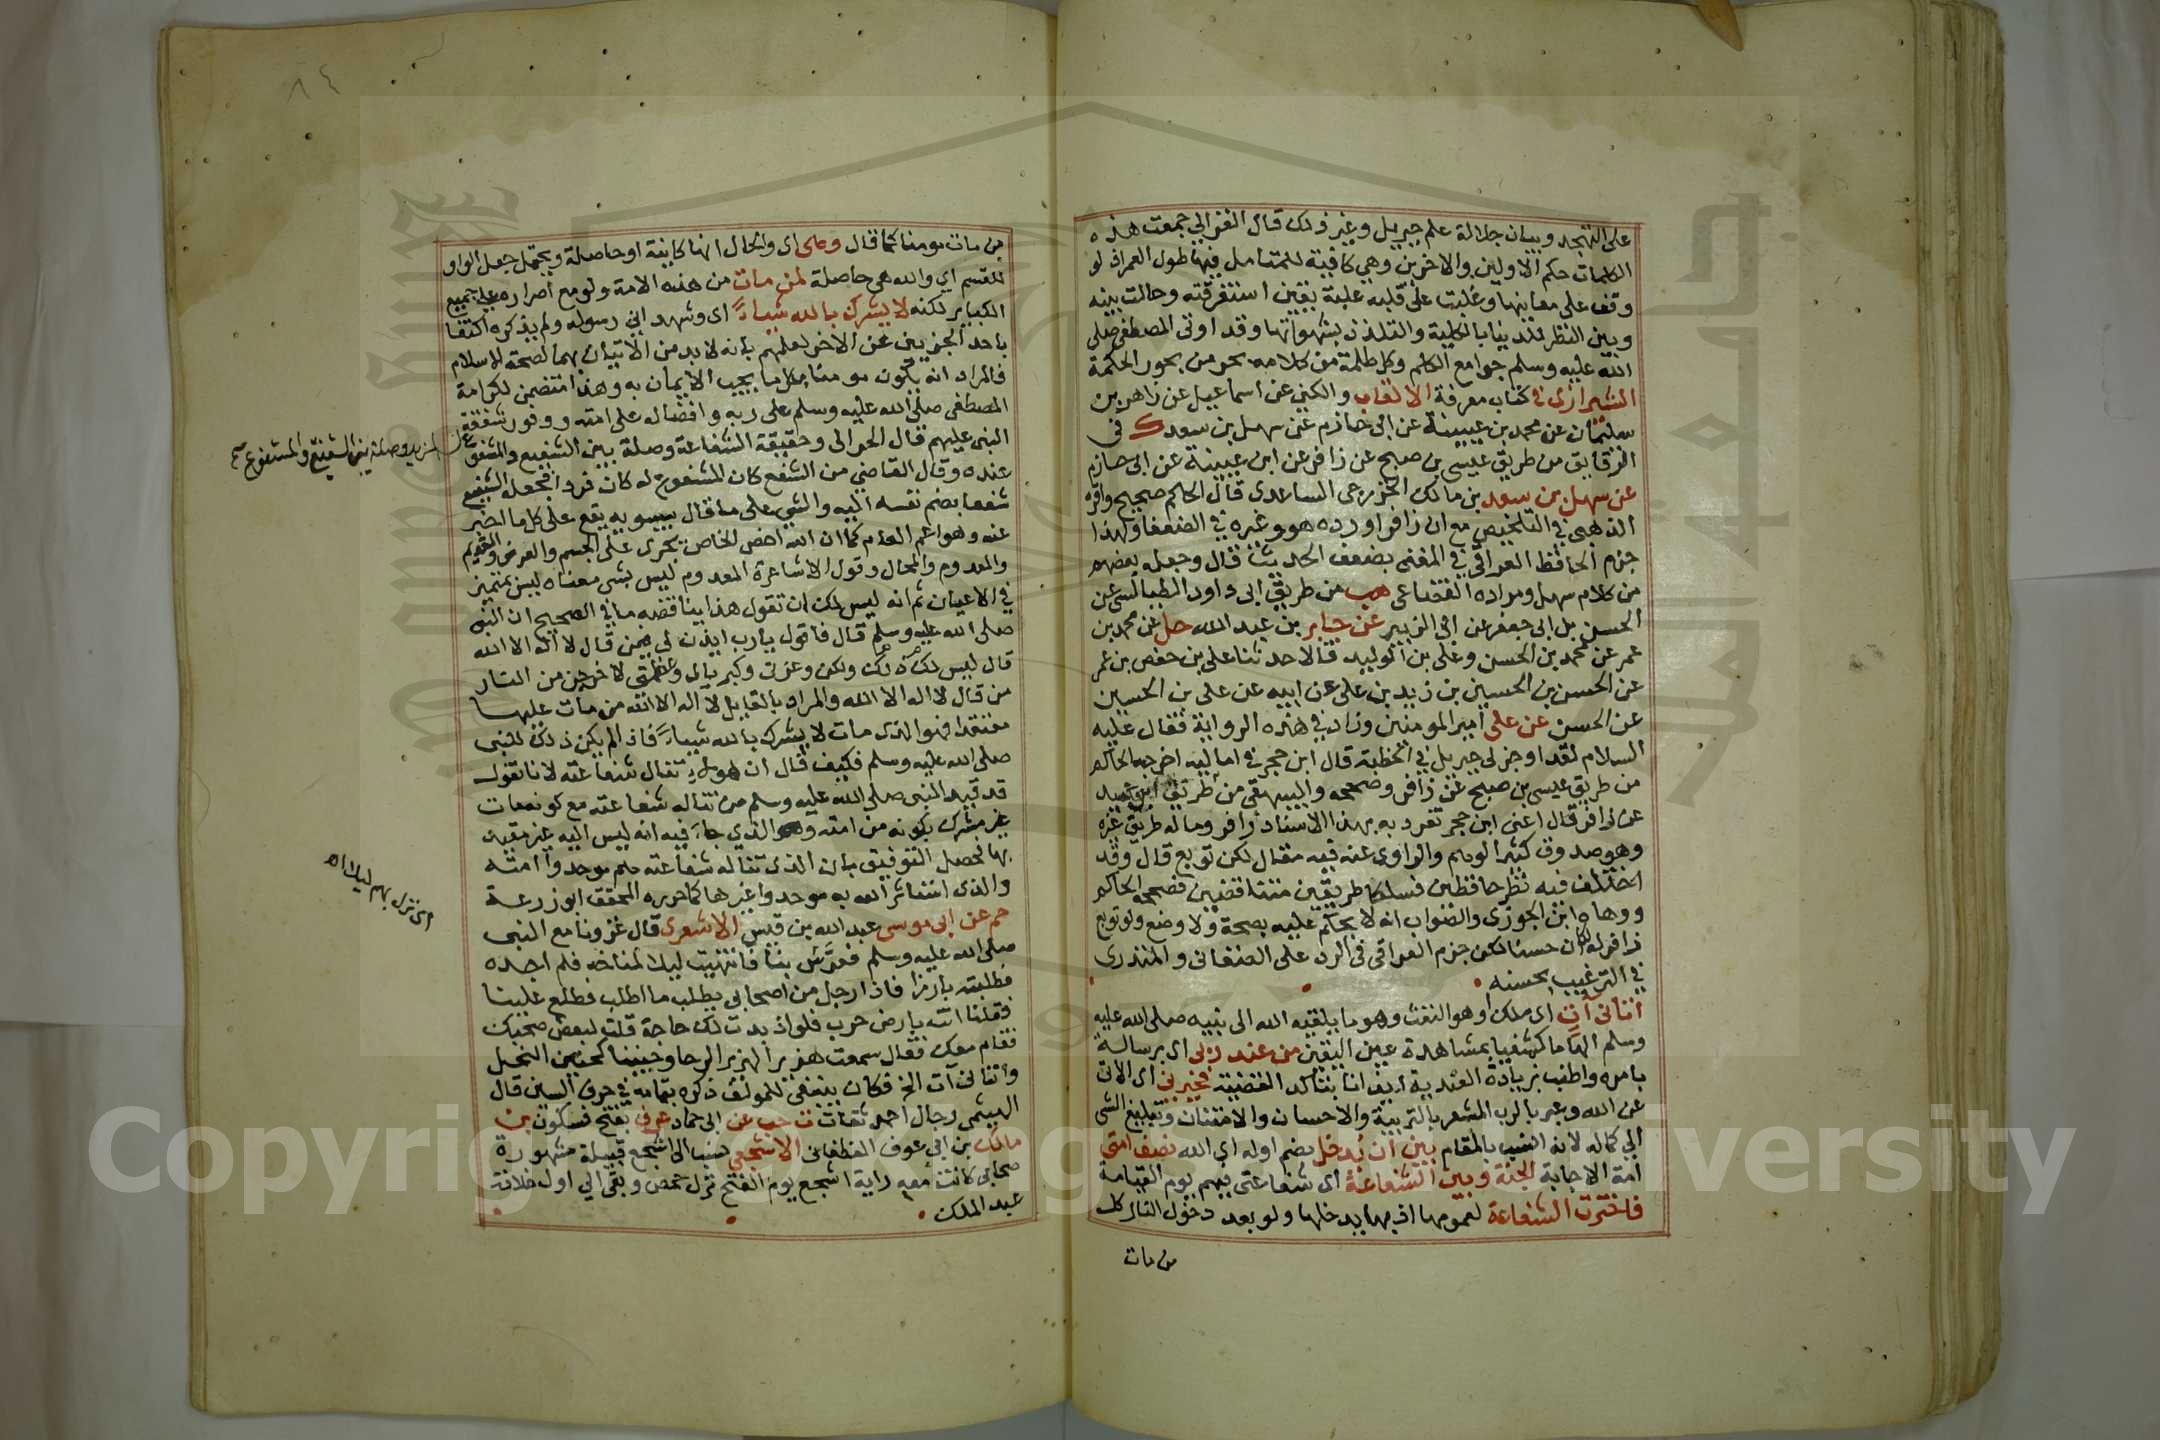 على التهجد وبيان جلالة علم جبريل وغير ذلك قال الغزالي جمعت هذه
الكلمات حكم الاولين والاخرين وهي كافية للمتامل فيها طول العمر اذ لو
وقف على معانيها وغلبت على قلبه غلبة يقين استغرقته وحالت بينه
وبين النظر للدنيا بالكلية والتلذذ بشهواتها وقد اوتى المصطفى صلى
الله عليه وسلم جوامع الكلم وكل كلمة من كلامه بحر من بحور الحكمة
الشيرازى في كتاب معرفة الالقاب والكنى عن اسماعيل عن زاهر بن
سليمان عن محمد بن عيينة عن ابى حازم عن سهل بن سعد ك في
الرقايق من طريق عيسى بن صبيح عن زافر عن ابن عيينة عن ابى حازم
عن سهل بن سعد بن مالك الخزرجى الساعدى قال الحاكم صحيح واقره
الذهبى في التلخيص مع ان زافر اورده هو وغيره في الضعفا ولهذا
جزم الحافظ العراقى في المغنى بضعف الحديث قال وجعله بعضهم
من كلام سهل ومراده القضاعى هب من طريق ابى داود الطيالسى عن
الحسن بن ابى جعفر عن ابى الزبير عن جابر بن عبد الله حل عن محمد بن
عمر عن محمد بن الحسن وعلى بن الوليد قالا حدثنا على بن حفص بن عمر
عن الحسن بن الحسين بن زيد بن على عن ابيه عن على بن الحسين
عن الحسن عن على امير المومنين وزاد في هذه الرواية فقال عليه
السلام لقد اوجز لى جبريل في الخطبة قال ابن حجر في اماليه اخرجه الحاكم
من طريق عيسى بن صبيح عن زافر وصححه والبيهقى من طريق ابن حميد
عن زافر قال اعنى ابن حجر تفرد به بهذا الاسناد زافر وماله طريق غيره
وهو صدوق كثير الوهم والراوى عنه فيه مقال لكن توبع قال وقد
اختلف فيه نظر حافظين فسلكا طريقين متناقضين فصححه الحاكم
ووهاه ابن الجوزى والصواب انه لا يحكم عليه بصحة ولا وضع ولو توبع
زافر لكان حسنا لكن جزم العراقى في الرد على الصغانى والمنذرى
في الترغيب بحسنه
اتانى آت اى ملك وهو النفث وهو ما يلقيه الله الى نبيه صلى الله عليه
وسلم الهاما كشفيا بمشاهدة عين اليقين من عند ربى اى برسالة
بامره واطنب بزيادة العندية ايذانا بتاكد القضية فخيرنى اى الاتى
عن الله وعبر بالرب المشعر بالتربية والاحسان والامتنان وتبليغ الشى
الى كماله لانه انسب بالمقام بين ان يدخل بضم اوله اى الله نصف امتى
امة الاجابة الجنة وبين الشفاعة اى شفاعتى فيهم يوم القيامة
فاخترت الشفاعة لعمومها اذ بها يدخلها ولو بعد دخول النار كل
من مات
٨٤
من مات مومنا كما قال وهى اى والحال انها كاينة او حاصلة ويحتمل جعل الواو
للقسم اي والله هي حاصلة لمن مات من هذه الامة ولو مع اصراره على جميع
الكباير لكنه لا يشرك بالله شياء اى وشهد انى رسوله ولم يذكره اكتفا
باحد الجزيين عن الاخر لعلمهم بانه لا بد من الاتيان بهما لصحة الاسلام
فالمراد انه يكون مومنا بكل ما يجب الايمان به وهذا متضمن لكرامة
المصطفى صلى الله عليه وسلم على ربه وافضاله على امته ووفور شفقة
النبى عليهم قال الحرالى وحقيقة الشفاعة وصلة بين الشفيع والمشفوع
عنده وقال القاضى من الشفع كان المشفوع له كان فردا فجعله الشفيع
شفعا بضم نفسه اليه والشى على ما قال سيبويه يقع على كل ما اخبر
عنه وهو اعم العام كما ان الله اخص الخاص يجرى على الجسم والعرض والقديم
والمعدوم والمحال وقول الاشاعرة المعدوم ليس بشى معناه ليس بمتميز
في الاعيان ثم انه ليس لك ان تقول هذا يناقضه ما في الصحيح ان النبى
صلى الله عليه وسلم قال فاقول يارب ايذن لى فيمن قال لا اله الا الله
قال ليس ذلك لك ولكن وعزتى وكبريائى وعظمتى لاخرجن من النار
من قال لا اله الا الله والمراد بالقايل لا اله الا الله من مات عليها
معتقدا فهو الذى مات لا يشرك بالله شياء فاذا لم يكن ذلك للنبى
صلى الله عليه وسلم فكيف قال ان هولاء تنال شفاعته لانا نقول
قد قيد النبى صلى الله عليه وسلم من تناله شفاعته مع كونه مات
غير مشرك بكونه من امته وهو الذي جاء فيه انه ليس اليه غير مقيد
بها لحصل التوفيق بان الذى تناله شفاعته هم موحدوا امته
والذى استاثر الله به موحدوا غيرها كما حرره المحقق ابو زرعة
حم عن ابى موسى عبد الله بن قيس الاشعرى قال غزونا مع النبى
صلى الله عليه وسلم فعرس بنا فانتهيت ليلا لمناخه فلم اجده
فطلبته بارزا فاذا رجل من اصحابى يطلب ما اطلب فطلع علينا
فقلنا انت بارض حرب فلو اذ بدت لك حاجة قلت لبعض صحبك
فقام معك فقال سمعت هزيرا كهزير الرحا وحنينا كحنين النحل
واتانى آت الخ فكان ينبغى للمولف ذكره بتمامه في حرف السين قال
الهيثمى رجال احمد ثقات ت حب عن ابى حماد عوف بفتح فسكون بن
مالك بن ابى عوف الغطفانى الاشجعى نسب الى اشجع قبيلة مشهورة
صحابى كانت معه راية اشجع يوم الفتح نزل حمص وبقى الى اول خلافة
عبد الملك
المزيد وصلة بين الشفيع والمشفوع صح
اى نزل بهم ليلا اه
Copyright © King Saud University